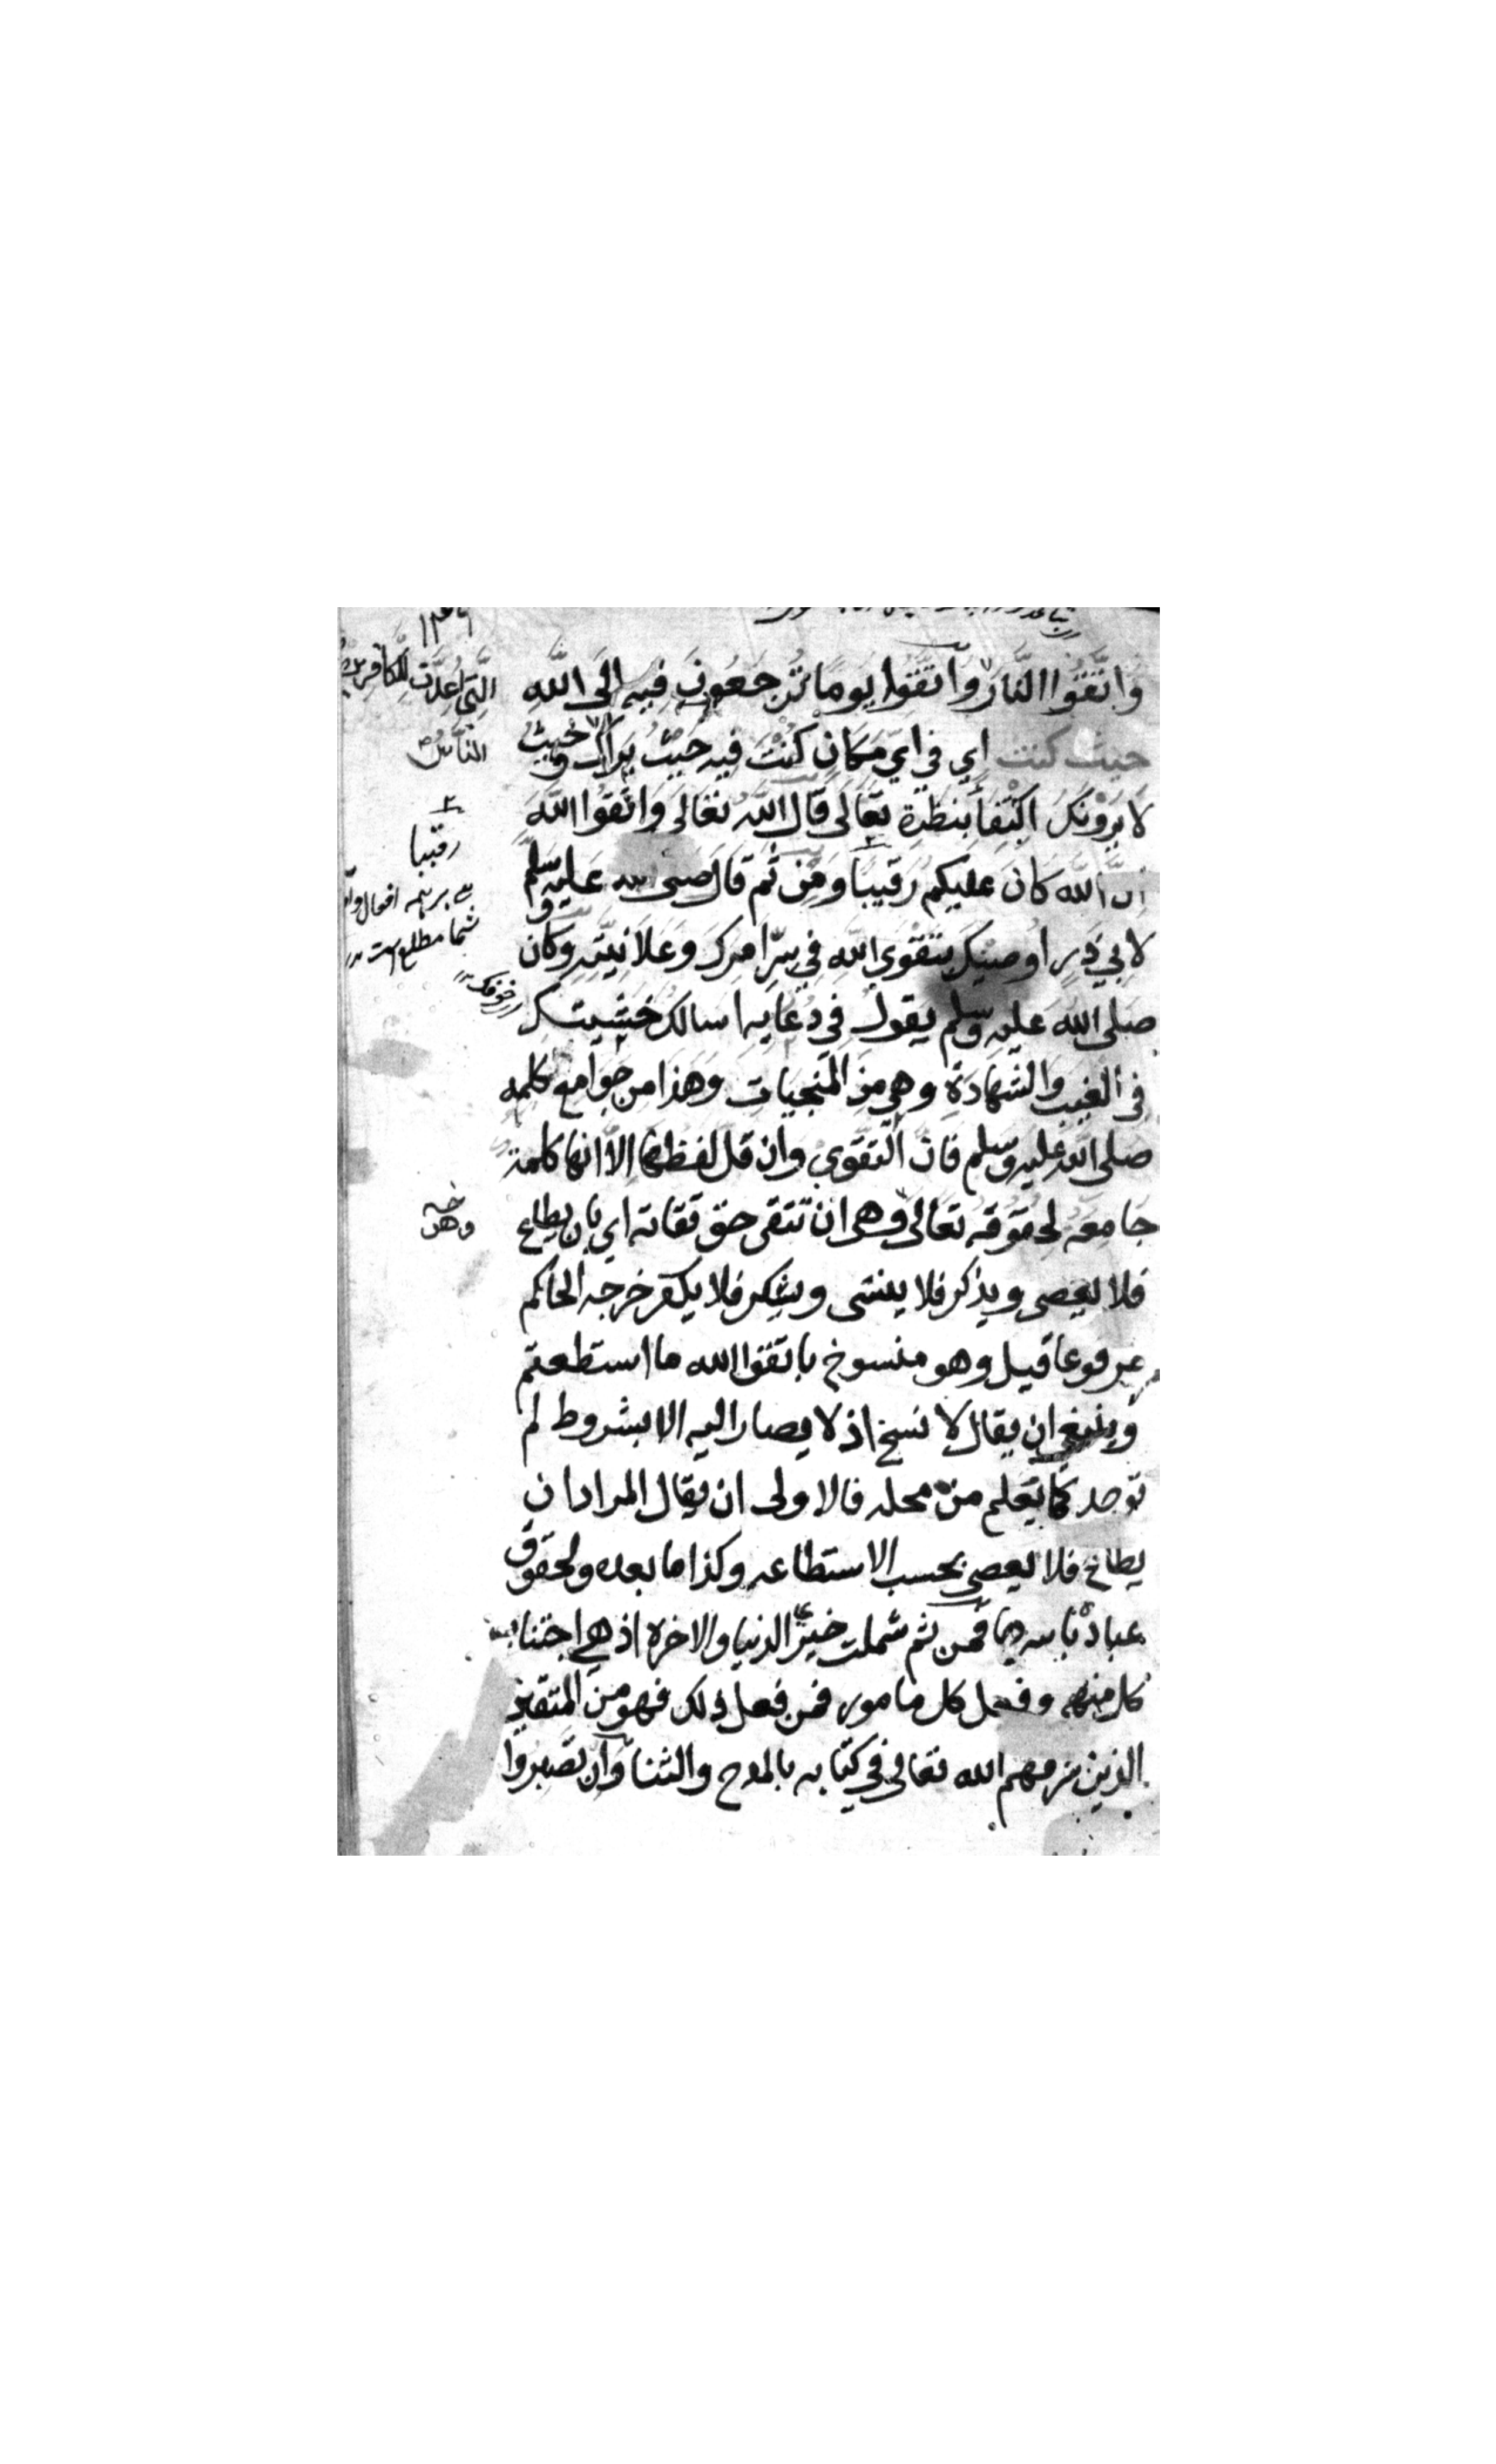 وَاتَّقُوا النَّارَ وَاتَّقُوا يَوما تُرجَعُونَ فِيهِ الَى اللَّهِ
التي اعدت للكافرين
حيث كنت اي في ايّ مكان كنت فيه حيث يراك وحيث
الناس
لا يرونك اكتفأ بنظره تعالى قال الله تعالى واتقوا الله
ان الله كان عليكم رقيبا ومن ثم قال صلى الله عليه وسلم
رقيبا
بر همه افعال
شما مطلع است
لابي ذر اوصيك بتقوي الله في سرّ امرك وعلانيته وكان
صلى الله عليه وسلم يقول في دعايه اسالك خشيتك
خوفك
في الغيب والشهادة وهي من المنجيات وهذا من جوامع كلمه
صلى الله عليه وسلم فان التقوي وان قل لفظها الا انها كلمة
جامعه لحقوقه تعالى وهي ان تتقى حق تقاته اي بان يطاع
فلا يعصى ويذكر فلا ينسى ويشكر فلا يكفر خرجه الحاكم
مرفوعا قيل وهو منسوخ باتقوا الله ما استطعتم
وينبغي ان يقال لا نسخ اذ لا يصار اليه الا بشروط لم
توجد كما يعلم من محله فالاولى ان يقال المراد ان
يطاع فلا يعصى بحسب الاستطاعه وكذا ما بعده ولحقوق
عباده باسرها فمن ثم شملت خير الدنيا والاخره اذ هي اجتناب
كل منهي وفعل كل مامور فمن فعل ذلك فهو من المتقين
الذين الله تعالى في كتابه بالمدح والثنا وان تصبروا